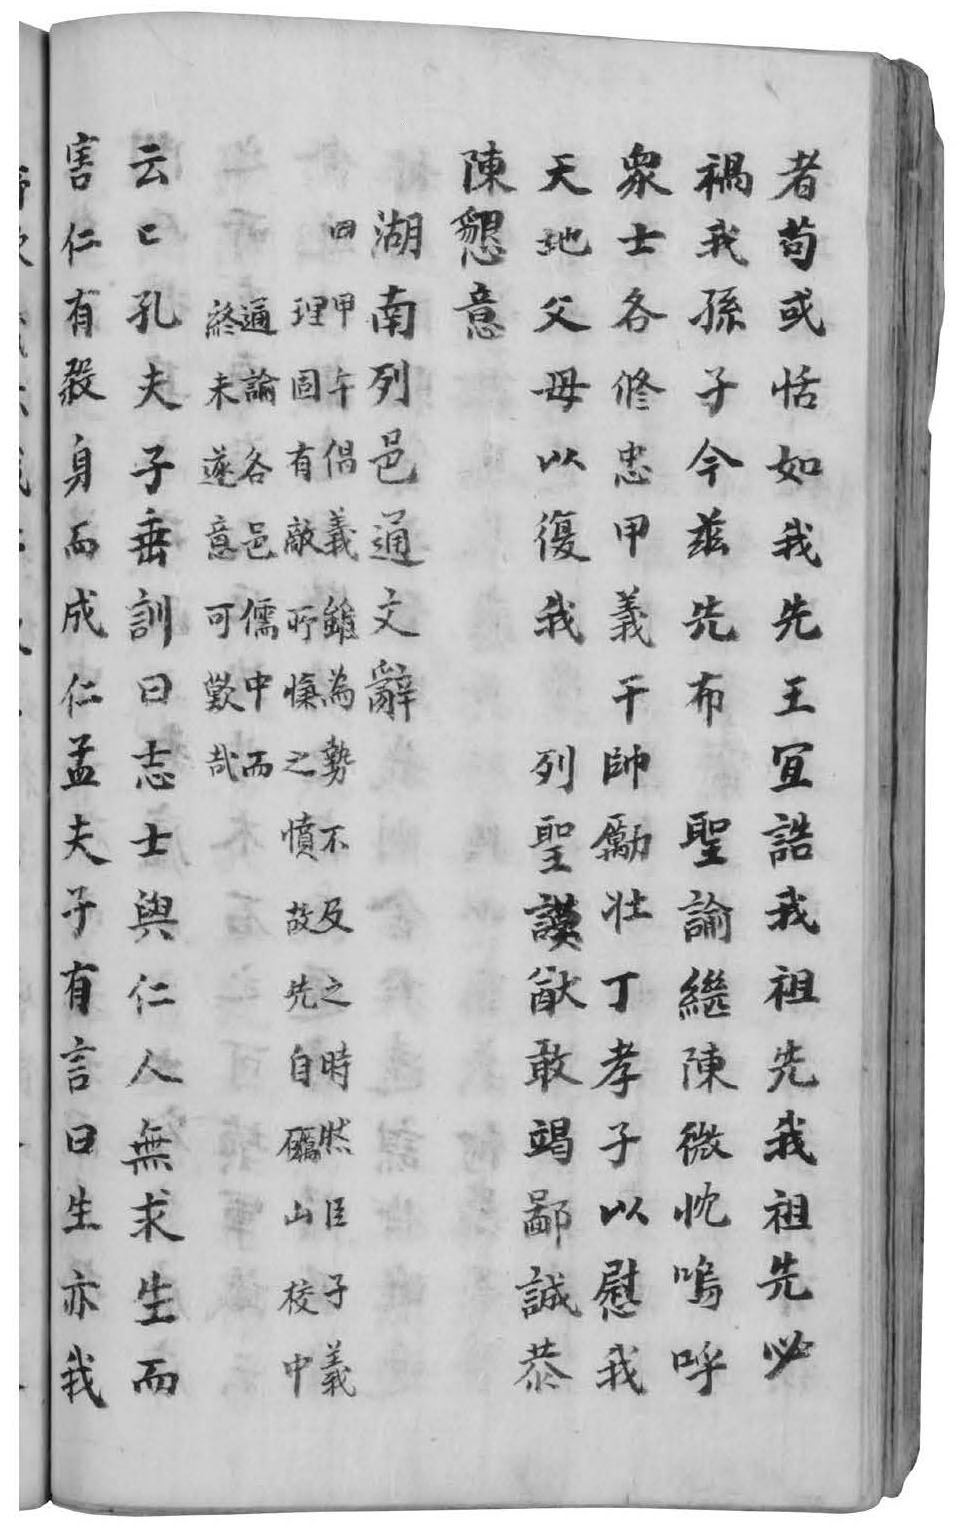 者苟或恬如我先王宜誥我祖先我祖先必
禍我孫子今玆先布聖諭繼陳微忱嗚呼
衆士各修忠甲義干帥勵壯丁孝子以慰我
天地父母以復我列聖謨猷敢竭鄙誠恭
陳懇意
湖南列邑通文辭
甲午倡義雖為勢不及之時然臣子義
理固有敵所愾之憤故先自礪山校中
通論各邑儒中而
終未遂意可歎哉
云云孔夫子垂訓曰志士與仁人無求生而
害仁有殺身而成仁孟夫子有言曰生亦我